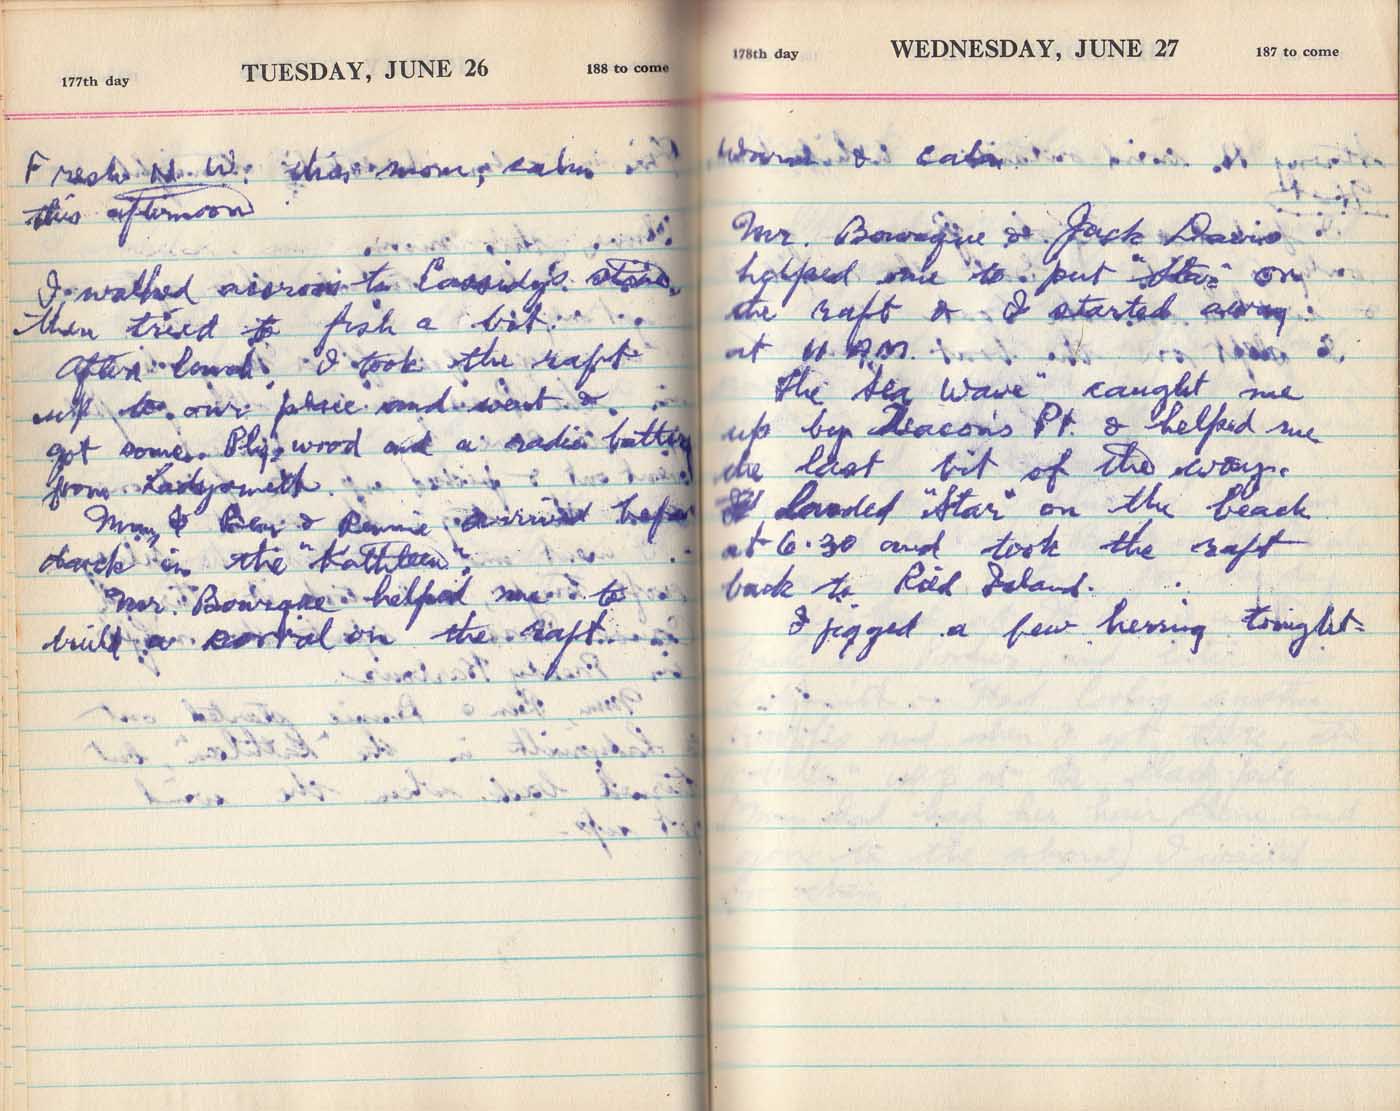 177th day TUESDAY, JUNE 26 188 to come
Fresh N. W. this morn, calm
this afternoon
I walked across to Cassidy's store,
then tried to fish a bit.
After lunch I took the raft
up to our place and went &
got some Plywood and a radio battery
from Ladysmith.
Mum, & Ben & Rennie arrived before
dark in the "Kathleen".
Mr. Bowogue helped me to
build a corral on the raft.
178th day WEDNESDAY, JUNE 27 187 to come
Warm & calm.
Mr. Bowogue & Jack Davis
helped me to put "Star" on
the raft & I started away
at 11 A.M.
The "Sea Wave" caught me
up by Deacons Pt. & helped me
the last bit of the way.
I landed "Star" on the beach
at 6.30 and took the raft
back to Ried Island.
I jigged a few herring tonight.